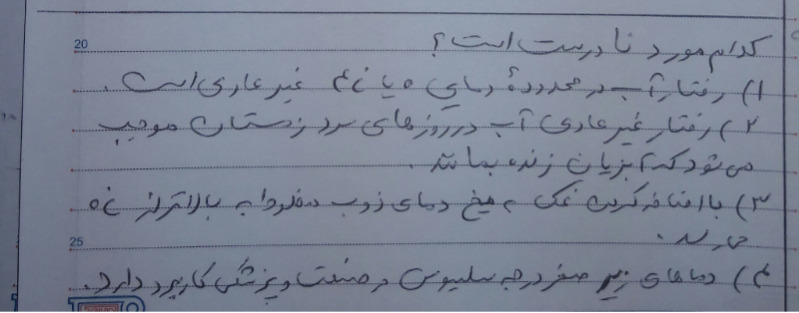 20
کدام مورد نا درست است؟
۱) رفتار آب در محدودهٔ دمای ۰ یا ۴ غیر عادی است.
۲) رفتار غیر عادی آب در روزهای سرد زمستان موجب
می شود که آبزیان زنده بمانند.
۳) با اضافه کردن نمک به یخ دمای ذوب مخلوط به بالاتر از ۰
می رسد.
25
۴) دماهای زیر صفر درجه سلیوس در صنعت و پزشکی کاربرد دارد.